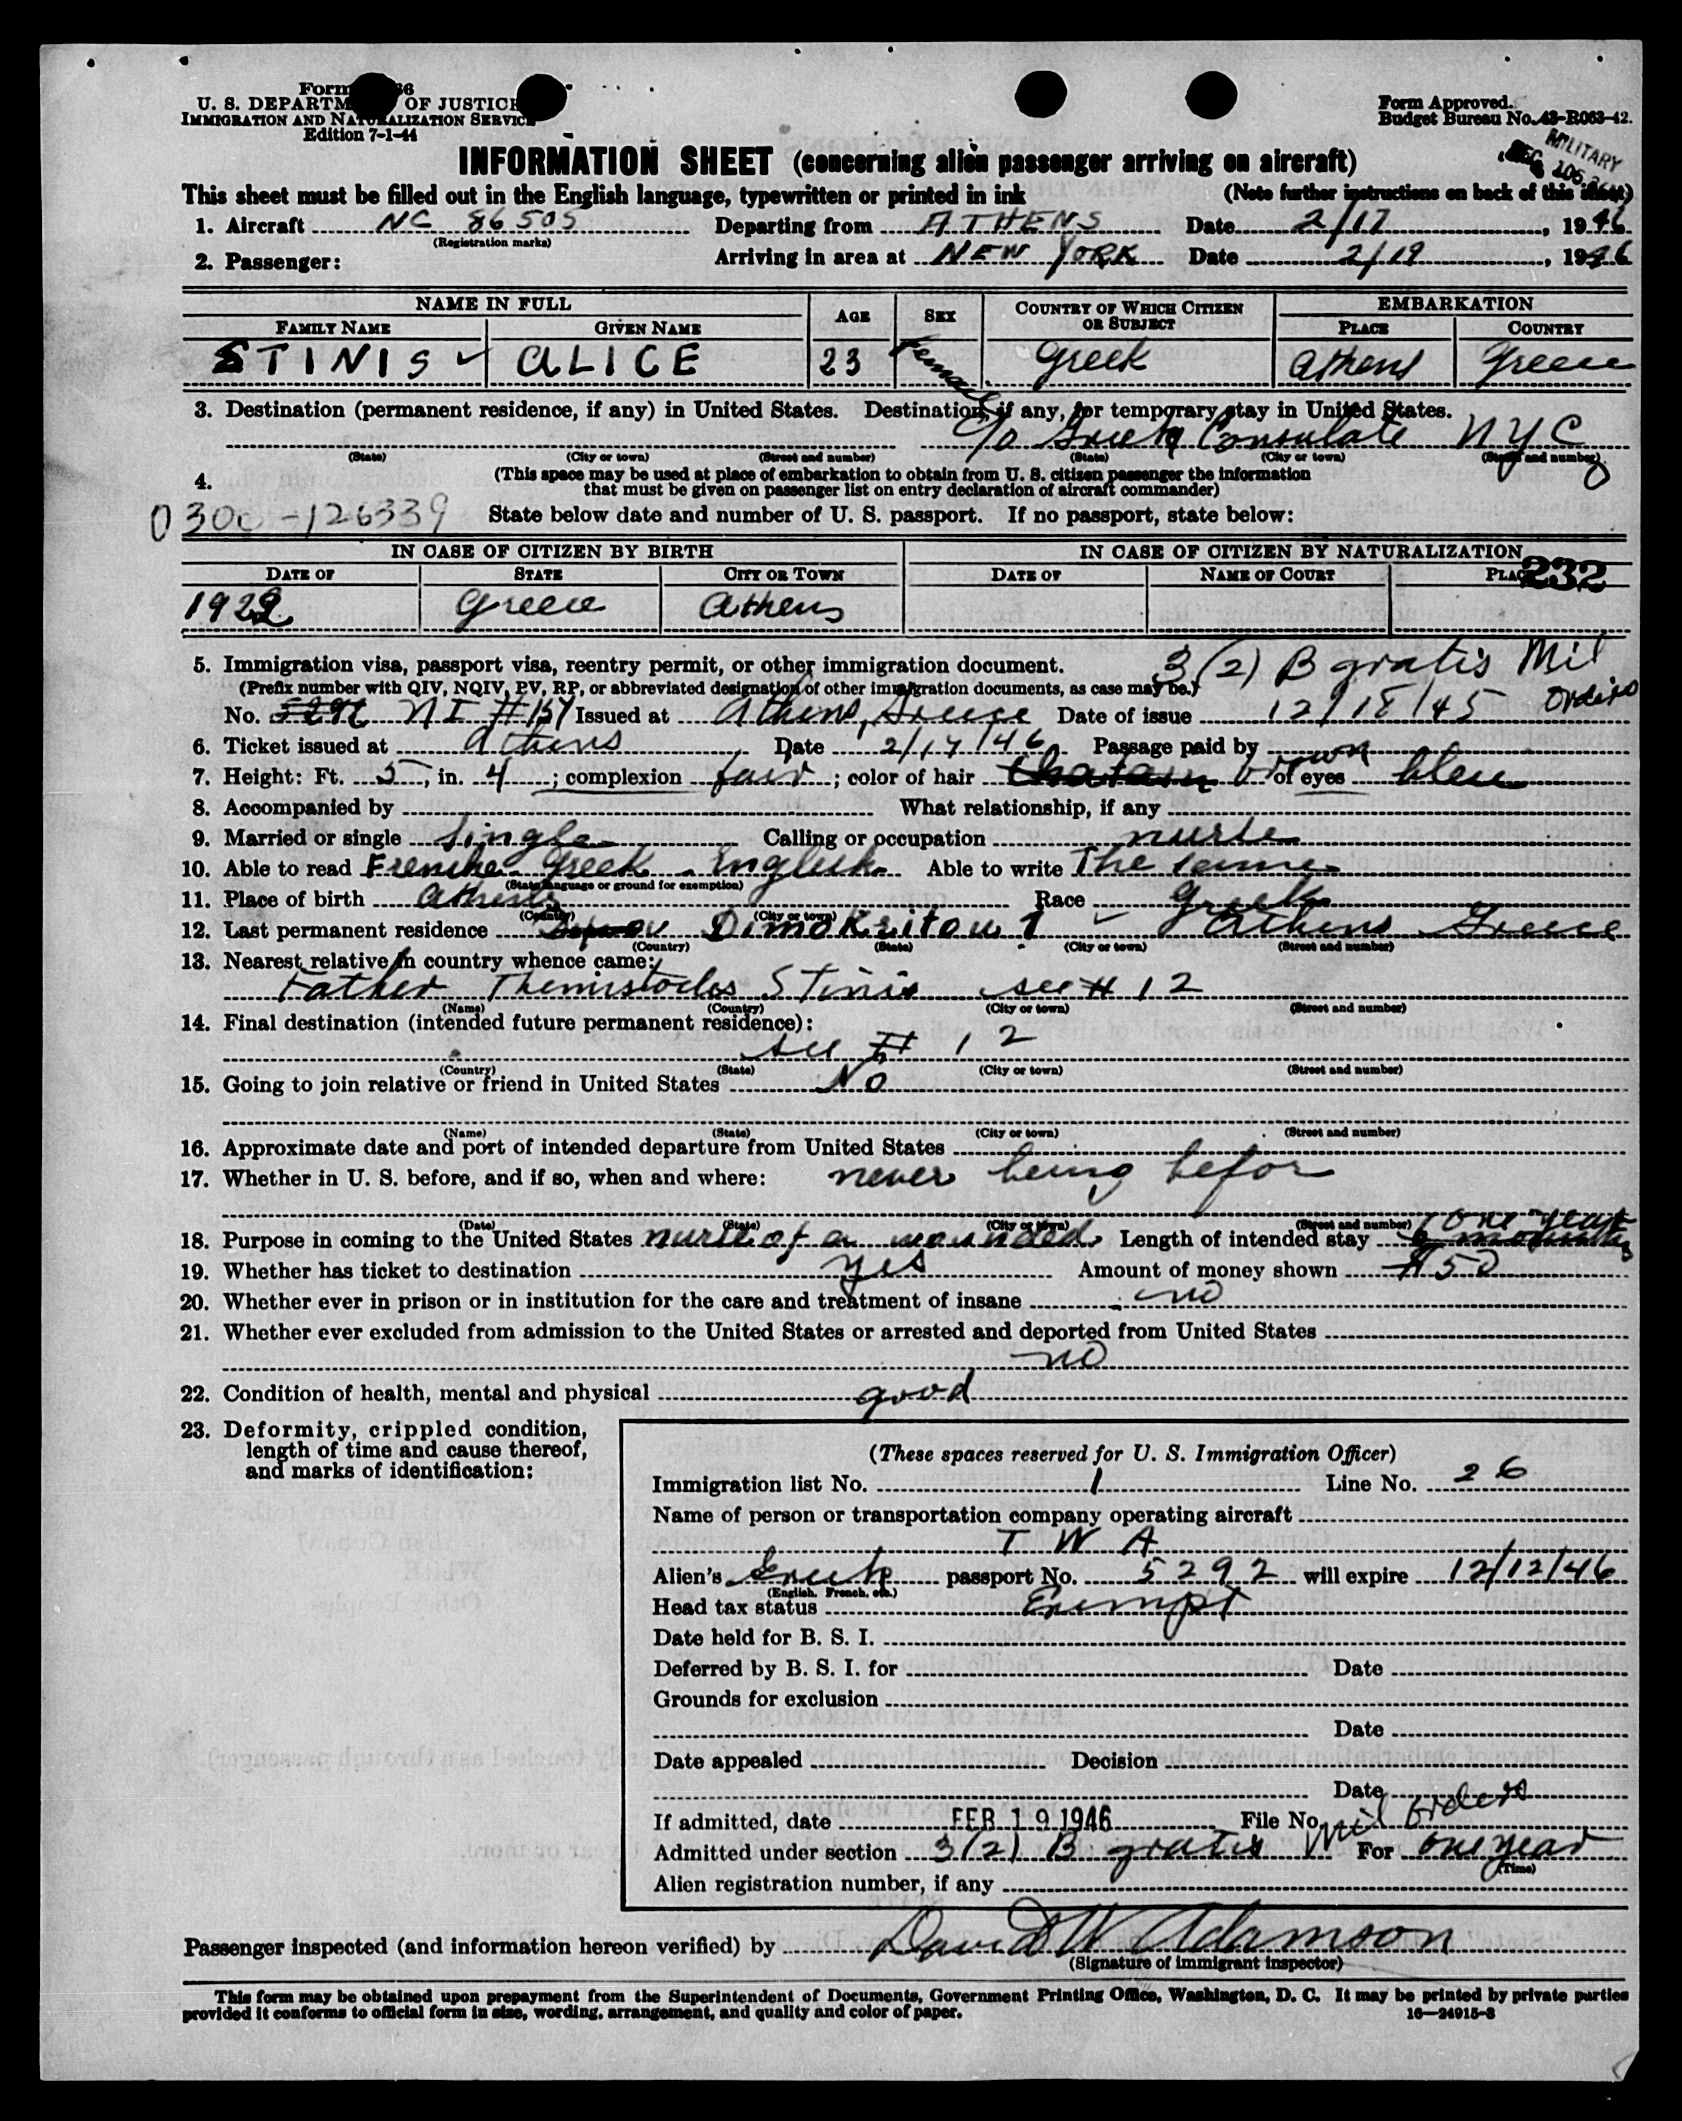 Form 66
U. S. DEPARTM OF JUSTICE
IMMIGRATION AND NATURALIZATION SERVICE
Edition 7-1-44
Form Approved.
Budget Bureau No. 43-R063-42.
MILITARY
INFORMATION SHEET (concerning alien passenger arriving on aircraft)
This sheet must be filled out in the English language, typewritten or printed in ink (Note further instructions on back of this sheet)
1. Aircraft NC 86505 Departing from ATHENS Date 2/17, 1946
(Registration marks)
2. Passenger: Arriving in area at NEW YORK Date 2/19, 1946
NAME IN FULL AGE SEX COUNTRY OF WHICH CITIZEN OR SUBJECT EMBARKATION
FAMILY NAME GIVEN NAME PLACE COUNTRY
STINIS ✓ ALICE 23 Female Greek Athens Greece
3. Destination (permanent residence, if any) in United States. Destination, if any, for temporary stay in United States.
c/o Greek Consulate NYC
(State) (City or town) (Street and number) (State) (City or town) (Street and number)
4. (This space may be used at place of embarkation to obtain from U. S. citizen passenger the information
that must be given on passenger list on entry declaration of aircraft commander)
0300-126339 State below date and number of U. S. passport. If no passport, state below:
IN CASE OF CITIZEN BY BIRTH IN CASE OF CITIZEN BY NATURALIZATION
232
DATE OF STATE CITY OR TOWN DATE OF NAME OF COURT PLACE
1922 Greece Athens
5. Immigration visa, passport visa, reentry permit, or other immigration document. 3(2) B gratis Mil
(Prefix number with QIV, NQIV, PV, RP, or abbreviated designation of other immigration documents, as case may be.) Orders
No. NI #157 Issued at Athens, Greece Date of issue 12/18/45
6. Ticket issued at Athens Date 2/17/46 Passage paid by
7. Height: Ft. 5, in. 4; complexion fair; color of hair Chatain brown of eyes bleu
8. Accompanied by What relationship, if any
9. Married or single single Calling or occupation nurse
10. Able to read Frenche Greek English Able to write The same
(State language or ground for exemption)
11. Place of birth Athens Race Greek
(Country) (City or town)
12. Last permanent residence Dimokritou 1 ✓ Athens Greece
(Country) (State) (City or town) (Street and number)
13. Nearest relative in country whence came:
Father Themistocles Stinis see # 12
(Name) (Country) (City or town) (Street and number)
14. Final destination (intended future permanent residence):
see # 12
(Country) (State) (City or town) (Street and number)
15. Going to join relative or friend in United States No
(Name) (State) (City or town) (Street and number)
16. Approximate date and port of intended departure from United States
17. Whether in U. S. before, and if so, when and where: never being befor
(Date) (State) (City or town) (Street and number)
18. Purpose in coming to the United States nurse of a wounded Length of intended stay 6 months one year
19. Whether has ticket to destination yes Amount of money shown $50
20. Whether ever in prison or in institution for the care and treatment of insane no
21. Whether ever excluded from admission to the United States or arrested and deported from United States
no
22. Condition of health, mental and physical good
23. Deformity, crippled condition,
length of time and cause thereof,
and marks of identification:
(These spaces reserved for U. S. Immigration Officer)
Immigration list No. 1 Line No. 26
Name of person or transportation company operating aircraft
T W A
Alien's Greek passport No. 5292 will expire 12/12/46
(English, French, etc.)
Head tax status Exempt
Date held for B. S. I.
Deferred by B. S. I. for Date
Grounds for exclusion
Date
Date appealed Decision
Date
If admitted, date FEB 19 1946 File No. Mil Orders
Admitted under section 3(2) B gratis For one year
(Time)
Alien registration number, if any
Passenger inspected (and information hereon verified) by David W Adamson
(Signature of immigrant inspector)
This form may be obtained upon prepayment from the Superintendent of Documents, Government Printing Office, Washington, D. C. It may be printed by private parties
provided it conforms to official form in size, wording, arrangement, and quality and color of paper. 16—24915-3